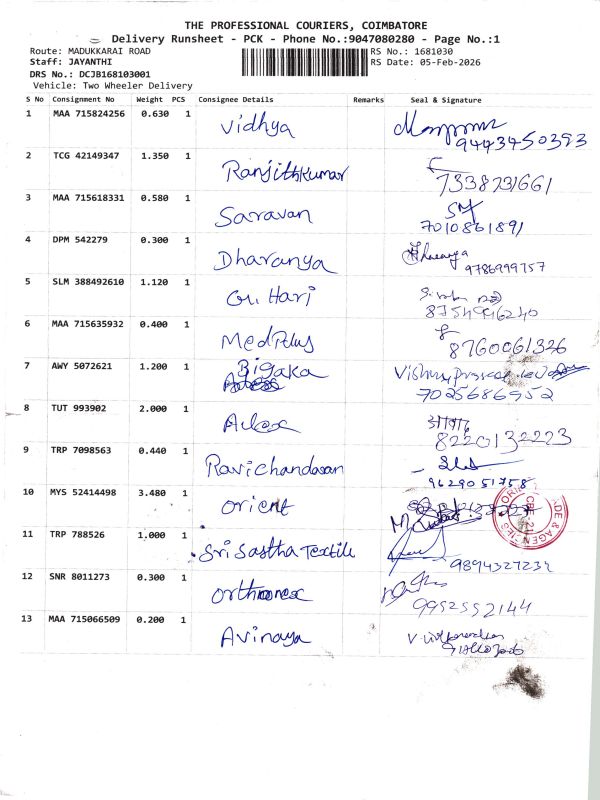 THE PROFESSIONAL COURIERS, COIMBATORE
Delivery Runsheet - PCK - Phone No.:9047080280 - Page No.:1
Route: MADUKKARAI ROAD RS No.: 1681030
Staff: JAYANTHI RS Date: 05-Feb-2026
DRS No.: DCJB168103001
Vehicle: Two Wheeler Delivery
S No Consignment No Weight PCS Consignee Details Remarks Seal & Signature
1 MAA 715824256 0.630 1 Vidhya
9443450393
2 TCG 42149347 1.350 1 Ranjithkumar
7338231661
3 MAA 715618331 0.580 1 Saravan
7010861891
4 DPM 542279 0.300 1 Dharanya
9786999757
5 SLM 388492610 1.120 1 Hari
8754946240
6 MAA 715635932 0.400 1 MedPlus
8760061326
7 AWY 5072621 1.200 1 Bigaka
7025686952
8 TUT 993902 2.000 1
8220132223
9 TRP 7098563 0.440 1 Ravichandasan
9629051758
10 MYS 52414498 3.480 1 Orient
11 TRP 788526 1.000 1 Sri Sastha Textile
9894327234
12 SNR 8011273 0.300 1
9952552144
13 MAA 715066509 0.200 1 Avinaya